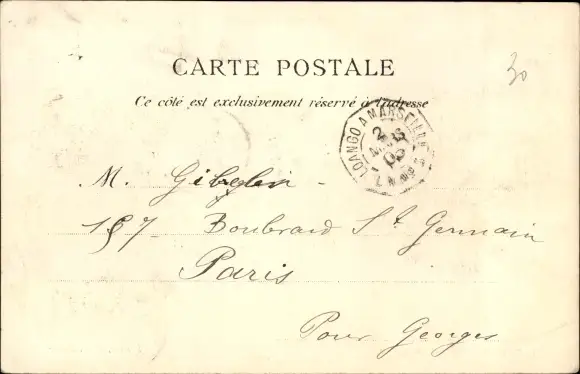 30
CARTE POSTALE
Ce côté est exclusivement réservé à l'adresse
LOANGO A MARSEILLE
2
MARS
03
M. Gibelin -
157 Boulevard St Germain
Paris
Pour Georges